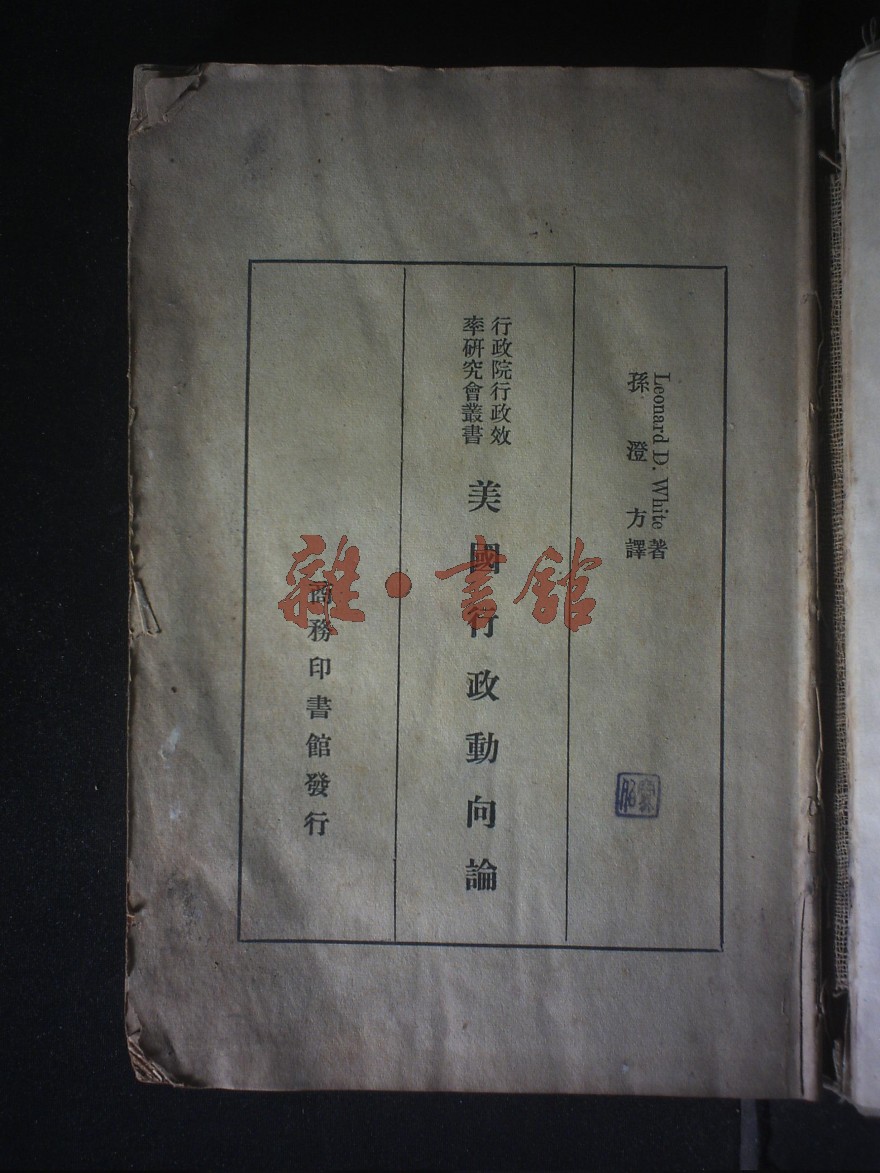 Leonard D. White 著
孫澄方譯
行政院行政效
率研究會叢書
美國行政動向論
商務印書館發行
雜·書館